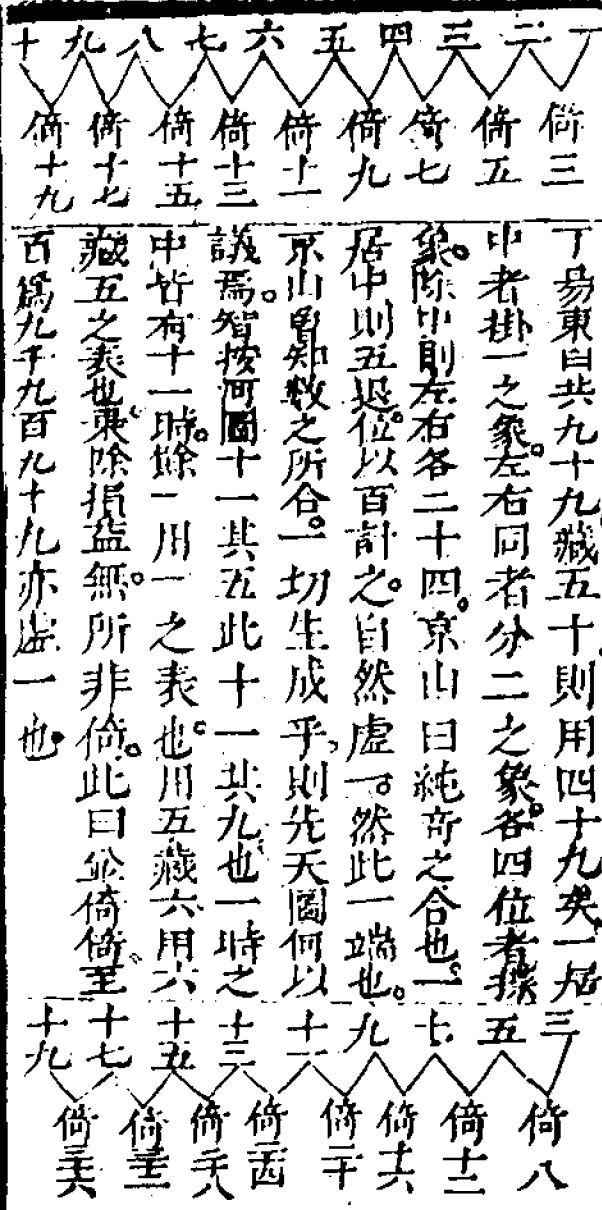 一 二 三 四 五 六 七 八 九 十
倚三 倚五 倚七 倚九 倚十一 倚十三 倚十五 倚十七 倚十九
丁易東曰共九十九藏五十則用四十九矣一居
中者掛一之象。左右同者分二之象。各四位者揲
象。除中則左右各二十四。京山曰純奇之合也。一
居中則五退位。以百計之。自然虛一。然此一端也。
京山曾知數之所合。一切生成乎。則先天圖何以
議焉。智按河圖十一其五此十一其九也。一時之
中皆有十一時。餘一用一之表也。用五藏六用六
藏五之表也。乘除損益無。所非倚。此曰參倚。倚至
百爲九千九百九十九亦虛一也。
三 五 七 九 十一 十三 十五 十七 十九
倚八 倚十二 倚十六 倚二十 倚二四 倚二八 倚三二 倚三六